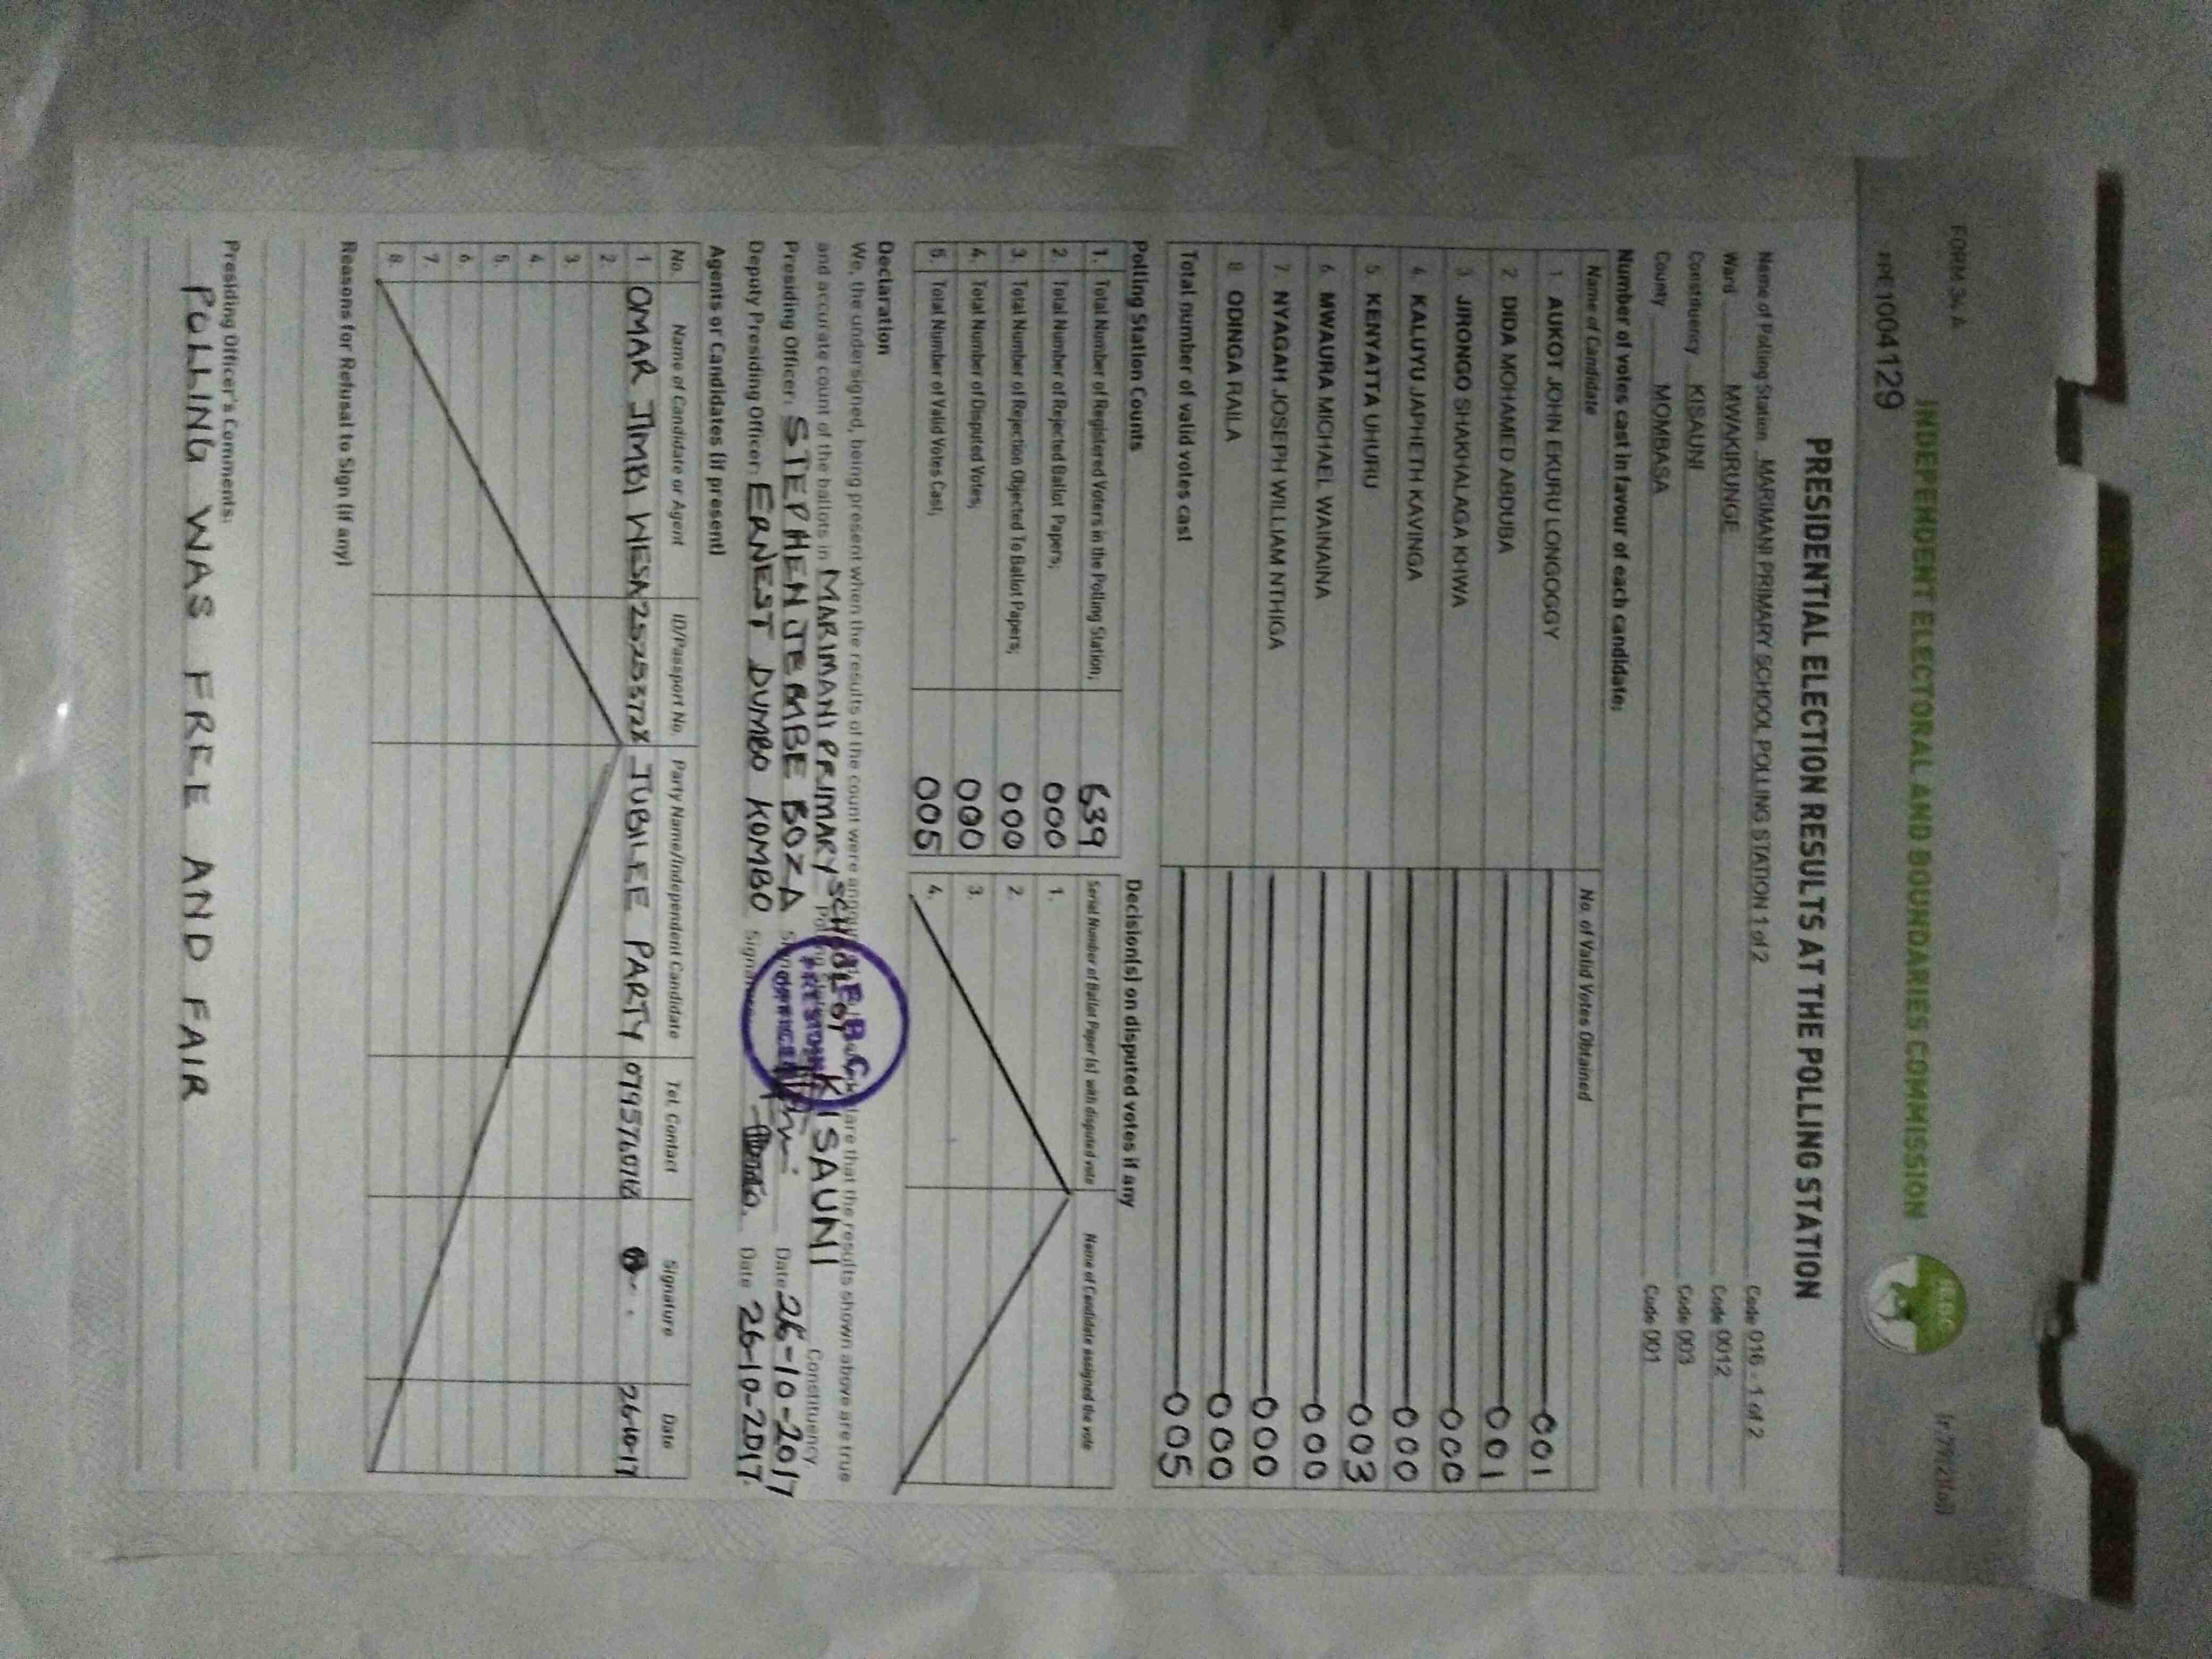 FORM 34 A
INDEPENDENT ELECTORAL AND BOUNDARIES COMMISSION
1004129
PRESIDENTIAL ELECTION RESULTS AT THE POLLING STATION
Name of Polling Station MARIMANI PRIMARY SCHOOL POLLING STATION 1 of 2 Code 016 - 1 of 2
Ward MWAKIRUNGE Code 0012
Constituency KISAUNI Code 003
County MOMBASA Code 001
Number of votes cast in favour of each candidate:
Name of Candidate No. of Valid Votes Obtained
1 AUKOT JOHN EKURU LONGOGGY 001
2 DIDA MOHAMED ABDUBA 001
3 JIRONGO SHAKHALAGA KHWA 000
4 KALUYU JAPHETH KAVINGA 000
5 KENYATTA UHURU 003
6 MWAURA MICHAEL WAINAINA 000
7 NYAGAH JOSEPH WILLIAM NTHIGA 000
8 ODINGA RAILA 000
Total number of valid votes cast 005
Polling Station Counts Decision(s) on disputed votes if any
1. Total Number of Registered Voters in the Polling Station; 639 Serial Number of Ballot Paper (s) with disputed vote Name of Candidate assigned the vote
2. Total Number of Rejected Ballot Papers; 000 1.
3. Total Number of Rejection Objected To Ballot Papers; 000 2.
4. Total Number of Disputed Votes; 000 3.
5. Total Number of Valid Votes Cast; 005 4.
Declaration
We, the undersigned, being present when the results of the count were declare that the results shown above are true
and accurate count of the ballots in MARIMANI PRIMARY SCHOOL KISAUNI Constituency.
Presiding Officer: STEPHEN BOZA Date 26-10-2017
Deputy Presiding Officer: ERNEST DUMBO KOMBO Signature Date 26-10-2017
PRESIDING
OFFICER
Agents or Candidates (if present)
No. Name of Candidate or Agent ID/Passport No. Party Name/Independent Candidate Tel. Contact Signature Date
1 OMAR JIMBI JUBILEE PARTY 26-10-17
2.
3.
4.
5.
6.
7.
8.
Reasons for Refusal to Sign (if any)
Presiding Officer's Comments:
POLLING WAS FREE AND FAIR